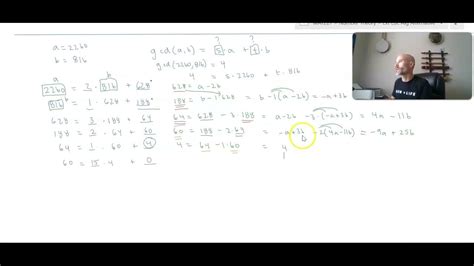 Number Theory - Ext Euc Alg Alternative
a = 2260
b = 816
gcd(a,b) = s·a + t·b
gcd(2260,816) = 4
4 = s·2260 + t·816
a b
2260 = 2·816 + 628
628 = a-2b
816 = 1·628 + 188
188 = b-1·628 = b-1(a-2b) = -a+3b
628 = 3·188 + 64
64 = 628-3·188 = a-2b -3·(-a+3b) = 4a-11b
188 = 2·64 + 60
60 = 188-2·64 = -a+3b -2(4a-11b) = -9a+25b
64 = 1·60 + 4
4 = 64-1·60 = 4
60 = 15·4 + 0